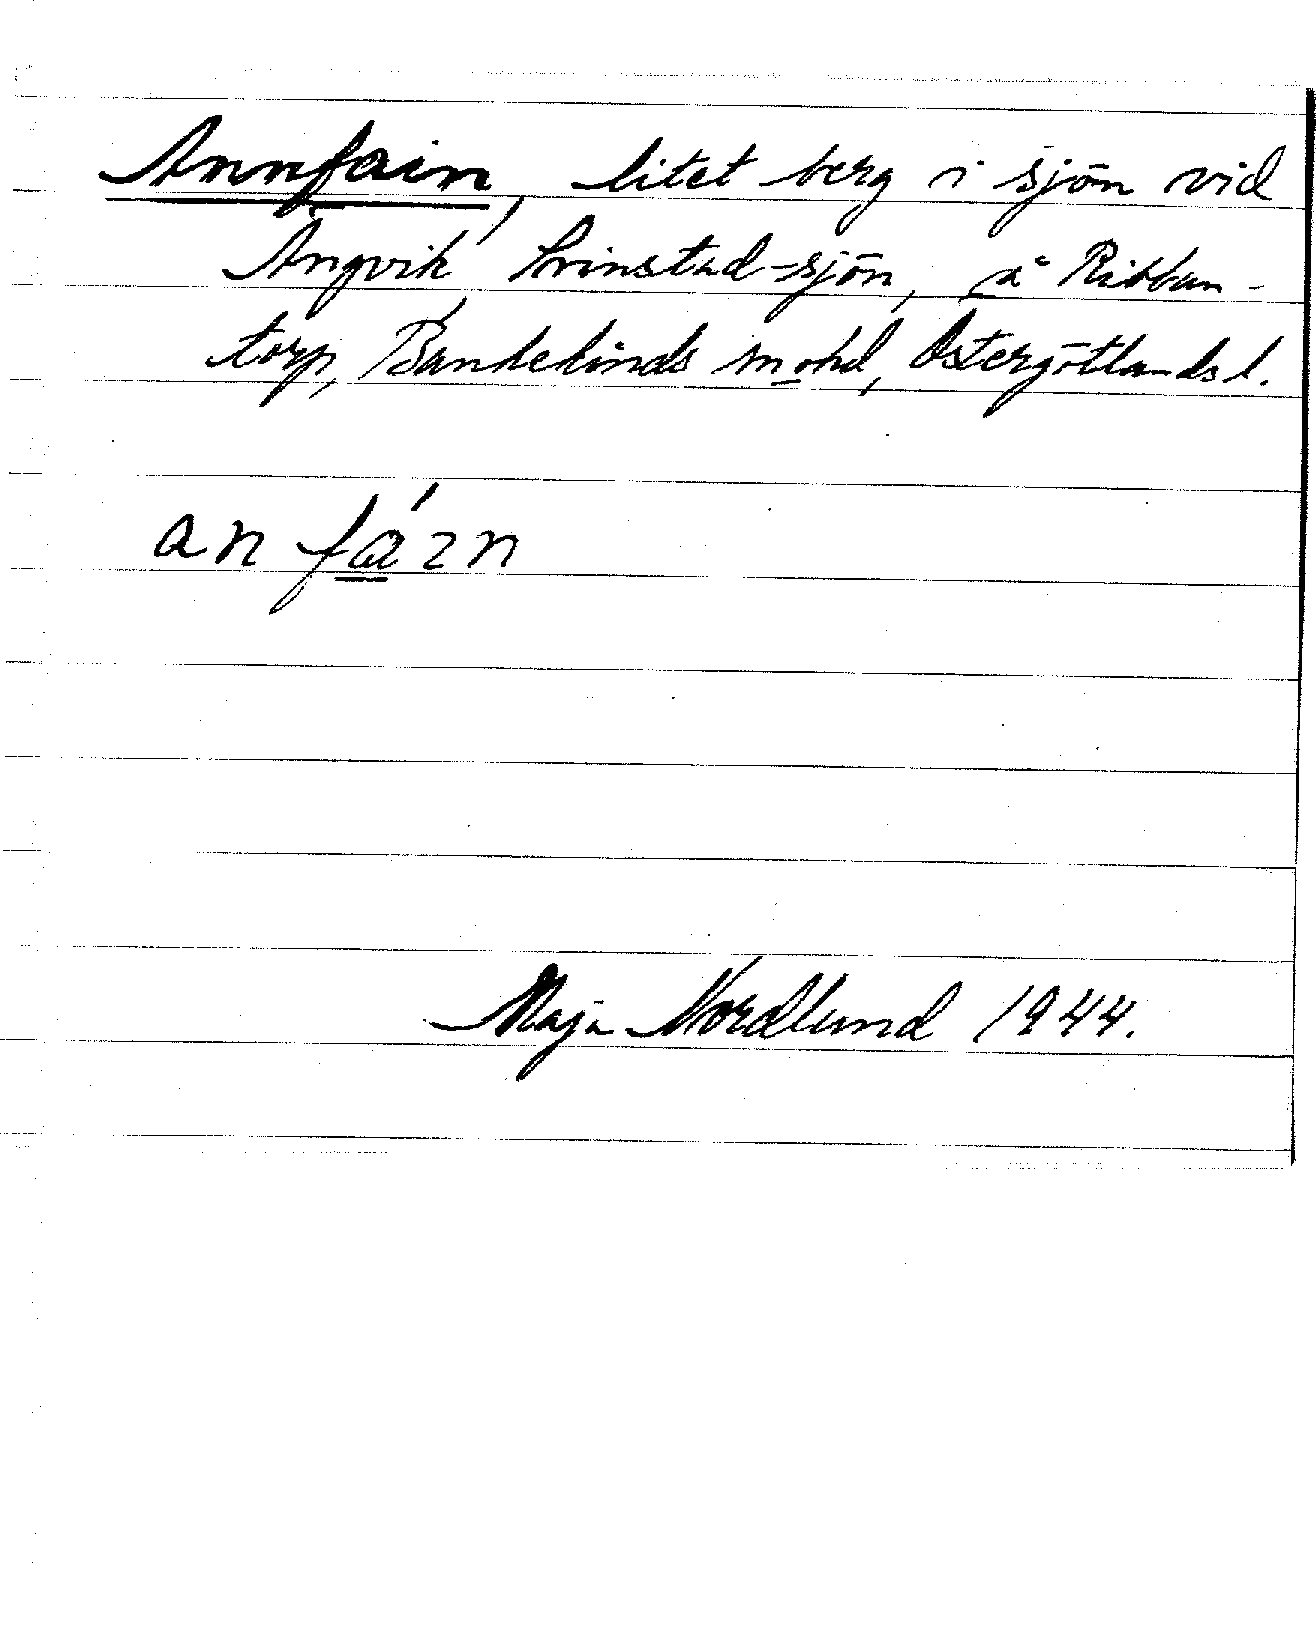 Annfain, litet berg i sjön vid
Ängvik Svinstad-sjön, å Ribban-
torp, Bankekinds sn o hd, Östergötlands l.
an fázn
Maja Nordlund 1944.